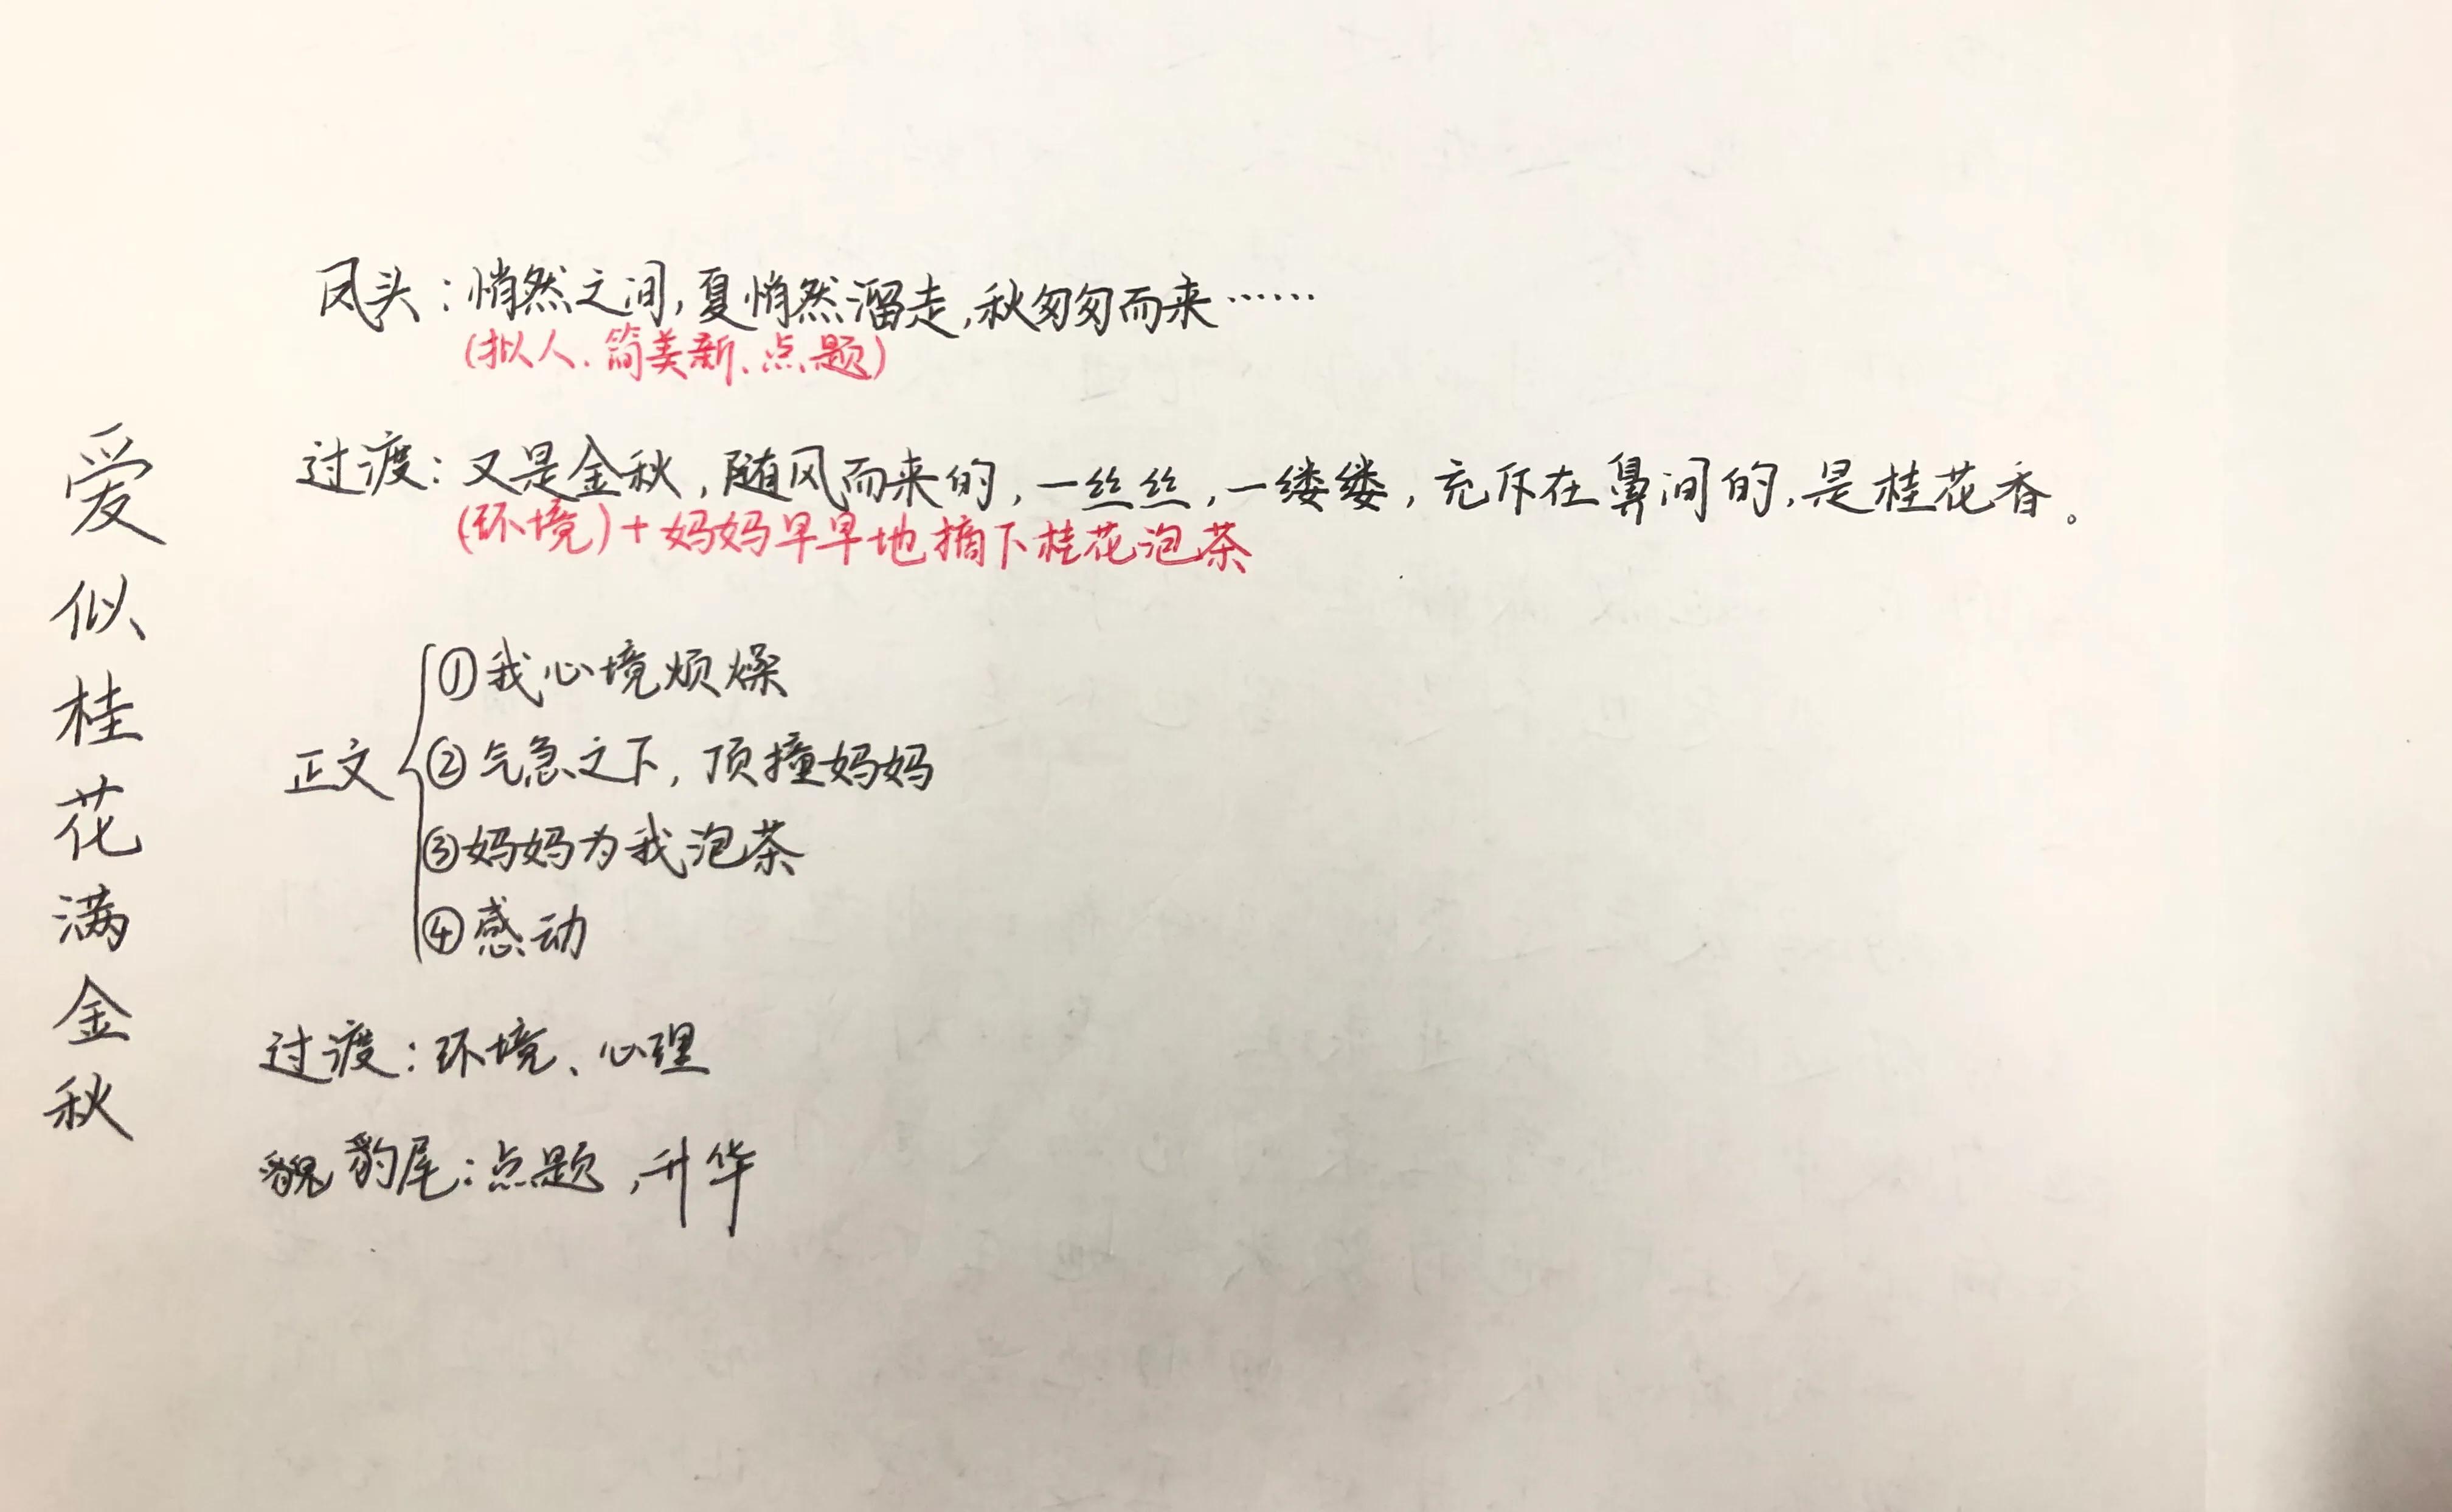 爱似桂花满金秋
凤头：悄然之间，夏悄然溜走，秋匆匆而来……
（拟人、简美新、点题）
过渡：又是金秋，随风而来的，一丝丝，一缕缕，充斥在鼻间的，是桂花香。
（环境）+妈妈早早地摘下桂花泡茶
正文
①我心境烦燥
②气急之下，顶撞妈妈
③妈妈为我泡茶
④感动
过渡：环境、心理
豹尾：点题，升华